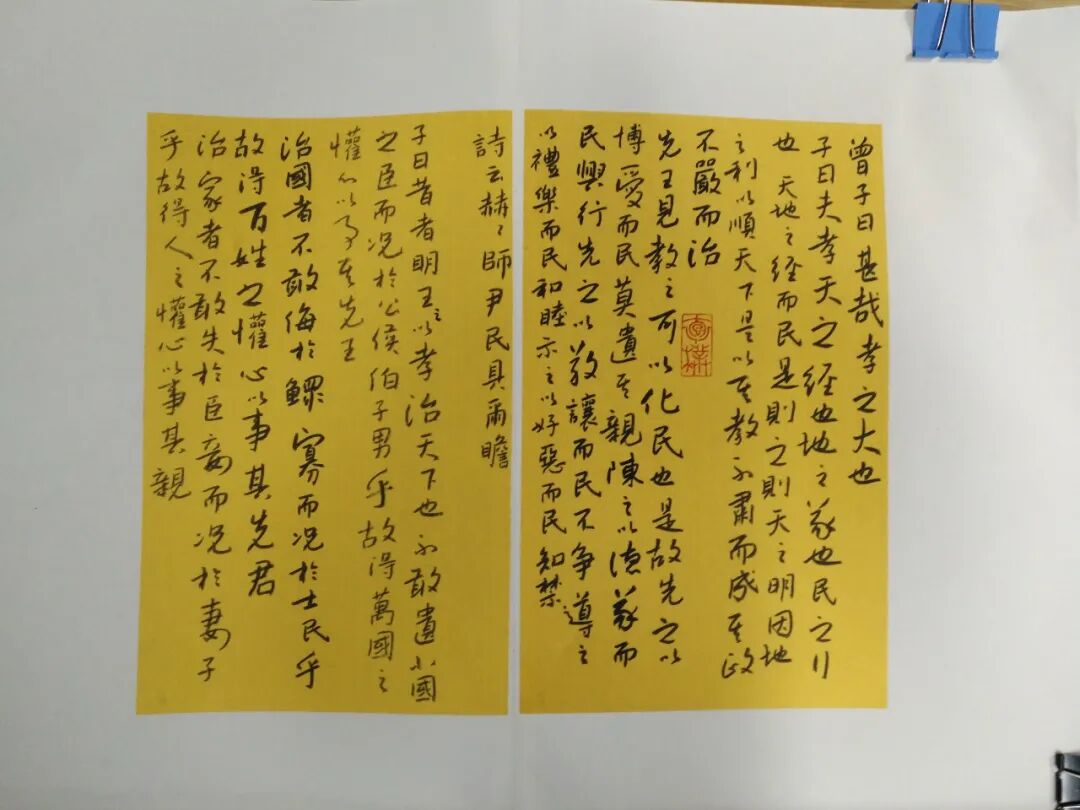 曾子曰甚哉孝之大也
子曰夫孝天之經也地之義也民之行
也天地之經而民是則之則天之明因地
之利以順天下是以其教不肅而成其政
不嚴而治
先王見教之可以化民也是故先之以
博愛而民莫遺其親陳之以德義而
民興行先之以敬讓而民不争導之
以禮樂而民和睦示之以好惡而民知禁
詩云赫々師尹民具爾瞻
子曰昔者明王之以孝治天下也不敢遺小國
之臣而况於公侯伯子男乎故得萬國之
懽心以事其先王
治國者不敢侮於鰥寡而况於士民乎
故得百姓之懽心以事其先君
治家者不敢失於臣妾而况於妻子
乎故得人之懽心以事其親